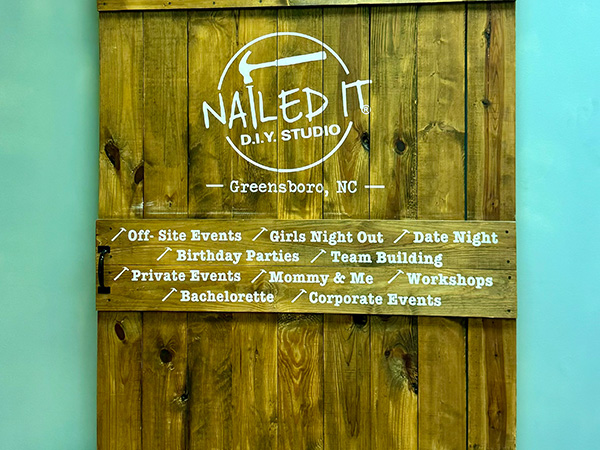 NAILED IT®
D.I.Y. STUDIO
— Greensboro, NC —
Off- Site Events Girls Night Out Date Night
Birthday Parties Team Building
Private Events Mommy & Me Workshops
Bachelorette Corporate Events